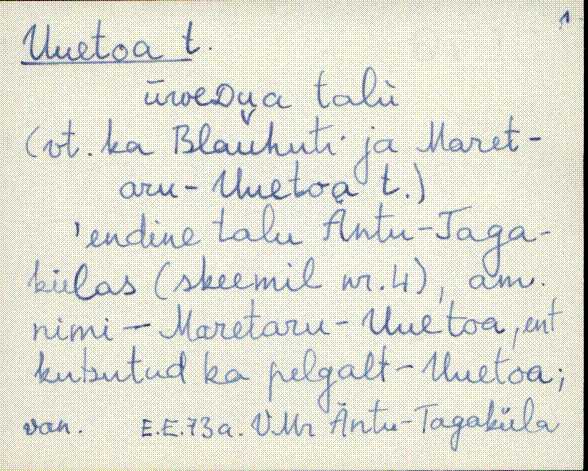 1
Uuetoa t.
ūweDu̯a talù
(vt. ka Blau̬huti ja Maret-
aru-Uuetoa t.)
'endine talu Äntu-Taga-
külas (skeemil nr. 4), am.
nimi – Maretaru-Uuetoa, ent
kutsutud ka pelgalt – Uuetoa;
van. E.E. 73a. VMr Äntu-Tagaküla